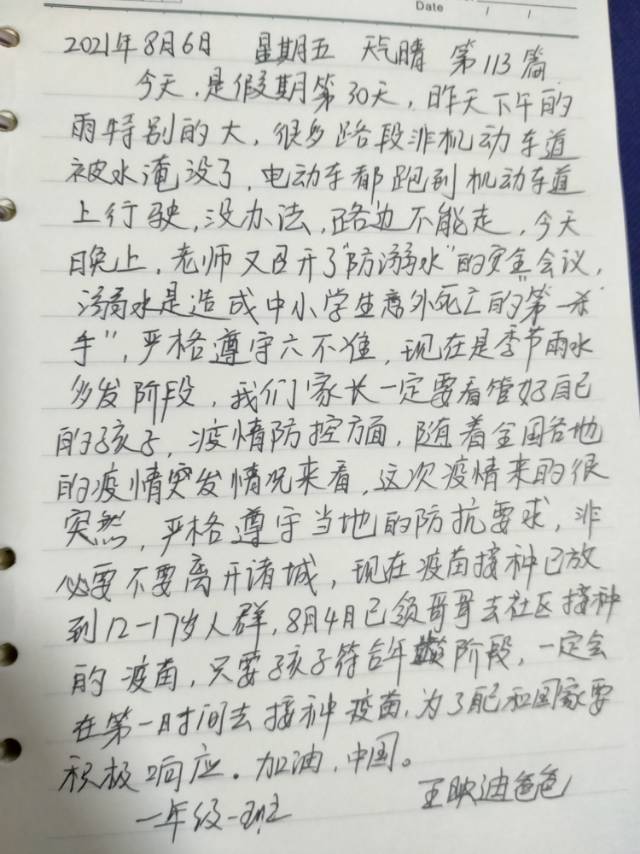 Date / /
2021年8月6日 星期五 天气晴 第113篇
今天,是假期第30天,昨天下午的
雨特别的大,很多路段非机动车道
被水淹没了,电动车都跑到机动车道
上行驶,没办法,路边不能走,今天
晚上,老师又召开了"防溺水"的安全会议,
溺水是造成中小学生意外死亡的"第一杀
手",严格遵守六不准,现在是季节雨水
多发阶段,我们家长一定要看管好自己
的孩子,疫情防控方面,随着全国各地
的疫情突发情况来看,这次疫情来的很
突然,严格遵守当地的防抗要求,非
必要不要离开诸城,现在疫苗接种已放
到12-17岁人群,8月4日已领哥哥去社区接种
的疫苗,只要孩子符合年龄阶段,一定会
在第一时间去接种疫苗,为了自己和国家要
积极响应。加油,中国。
一年级一班 王映迪爸爸